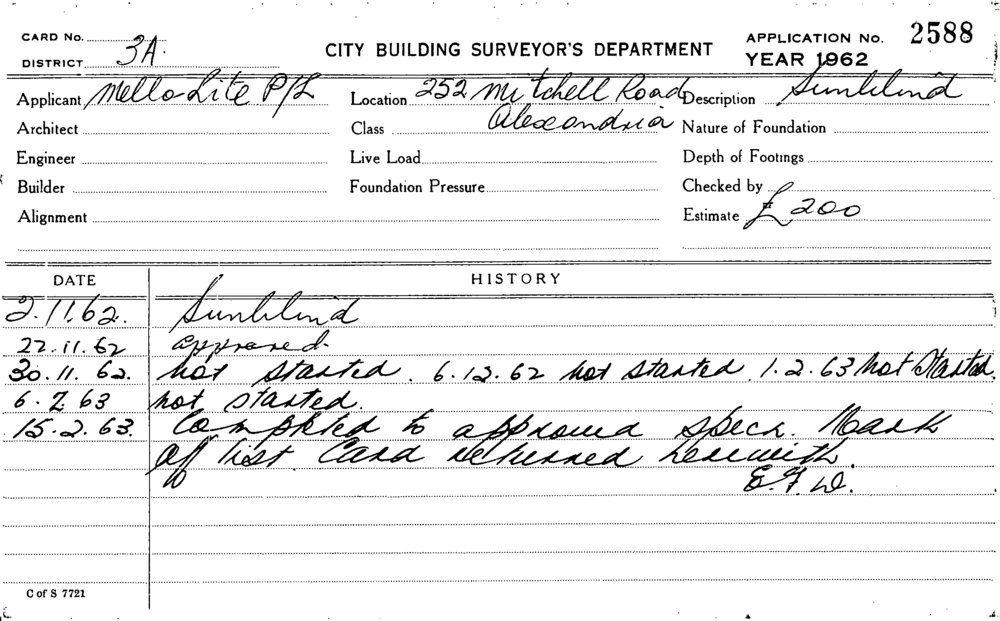 CARD No.
DISTRICT 3A.
CITY BUILDING SURVEYOR'S DEPARTMENT
APPLICATION No. 2588
YEAR 1962
Applicant Mello-Lite P/L
Location 252 Mitchell Road
Alexandria
Description Sunblind
Architect
Class
Nature of Foundation
Engineer
Live Load
Depth of Footings
Builder
Foundation Pressure
Checked by
Alignment
Estimate £200
DATE HISTORY
2.11.62. Sunblind
22.11.62 approved.
30.11.62. not started. 6.12.62 not started. 1.2.63 not started.
6.2.63 not started.
15.2.63. Completed to approved specn. Mark
off list. Card returned herewith.
E.F.W.
C of S 7721